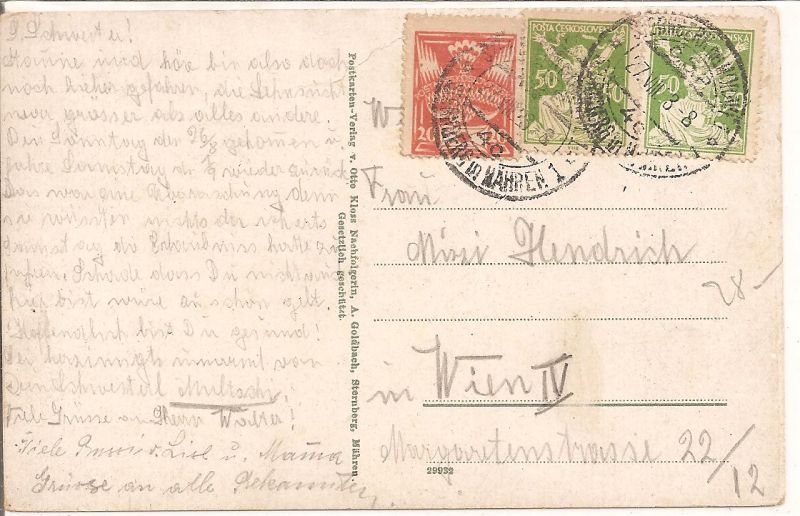 L. Schwester!
Staune und höre bin also doch
noch hieher gefahren, die Sehnsucht
war grösser als alles andere.
Bin Sonntag den 26/8 gekommen u
fahre Samstag d 1/9 wieder zurück
Das war eine Überraschung denn
sie wussten nichts
Samstag die Erlaubniss hatte zu
fahren. Schade dass Du nicht
hier bist wäre zu schön gebt.
Hoffendlich bist Du gesund!
Sei herzinnigst umarmt von
Dein Schwesterl Multschi,
Viele Grüsse an Herrn Walter!
Viele Bussi v. Liesl u. Mama
Grüsse an alle Bekannten,
Postkarten-Verlag v. Otto Kloss Nachfolgerin, A. Goldbach, Sternberg, Mähren.
Gesetzlich geschützt.
20
POSTA ČESKOSLOVENSKÁ
50 50
50
STERNBERG IN MÄHREN 1
27.VIII 23 8
Frau
Mizi Hendrich
28-
in Wien IV
Margaretenstrasse 22/12
29932